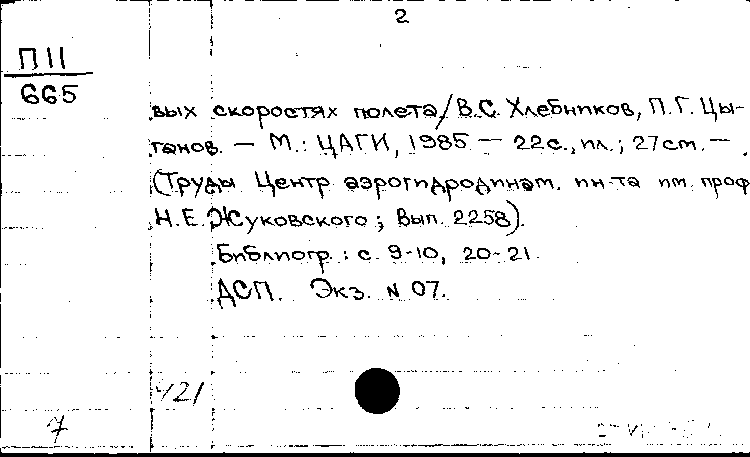 2
П 11
665
вых скоростях полета / В.С. Хлебников, П.Г. Цы-
ганов. — М.: ЦАГИ, 1985 — 22 с., ил.; 27 см. —
(Труды Центр аэрогидродинам. ин-та им. проф
Н.Е. Жуковского; Вып. 2258).
Библиогр.: с. 9-10, 20-21.
ДСП. Экз. N 07.
421
7